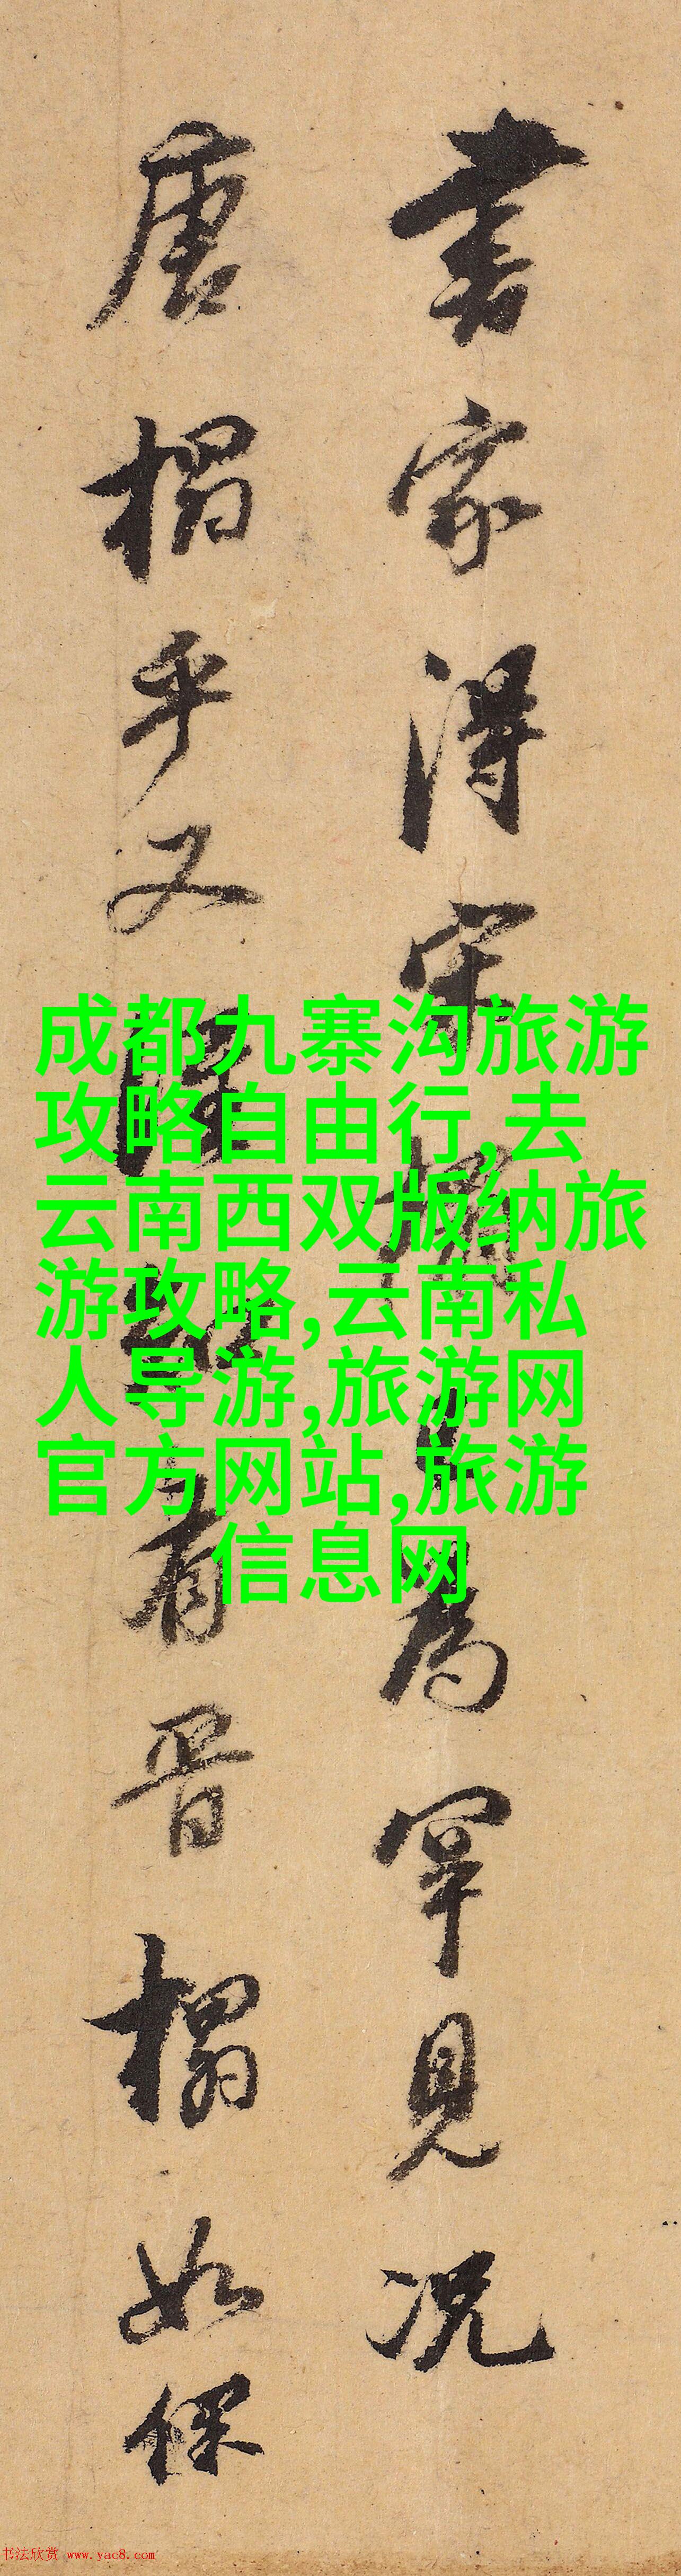 書家得宋榻以為罕見況
唐榻乎又深知有晋榻如保
成都九寨沟旅游
攻略自由行,去
云南西双版纳旅
游攻略,云南私
人导游,旅游网
官方网站,旅游
信息网
书法欣赏 www.yac8.com